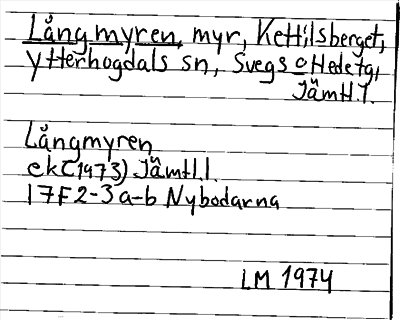 Långmyren, myr, Kettilsberget,
Ytterhogdals sn, Svegs o Hede tg,
Jämtl.l.
Långmyren
ek(1973) Jämtl.l.
17F2-3a-b Nybodarna
LM 1974